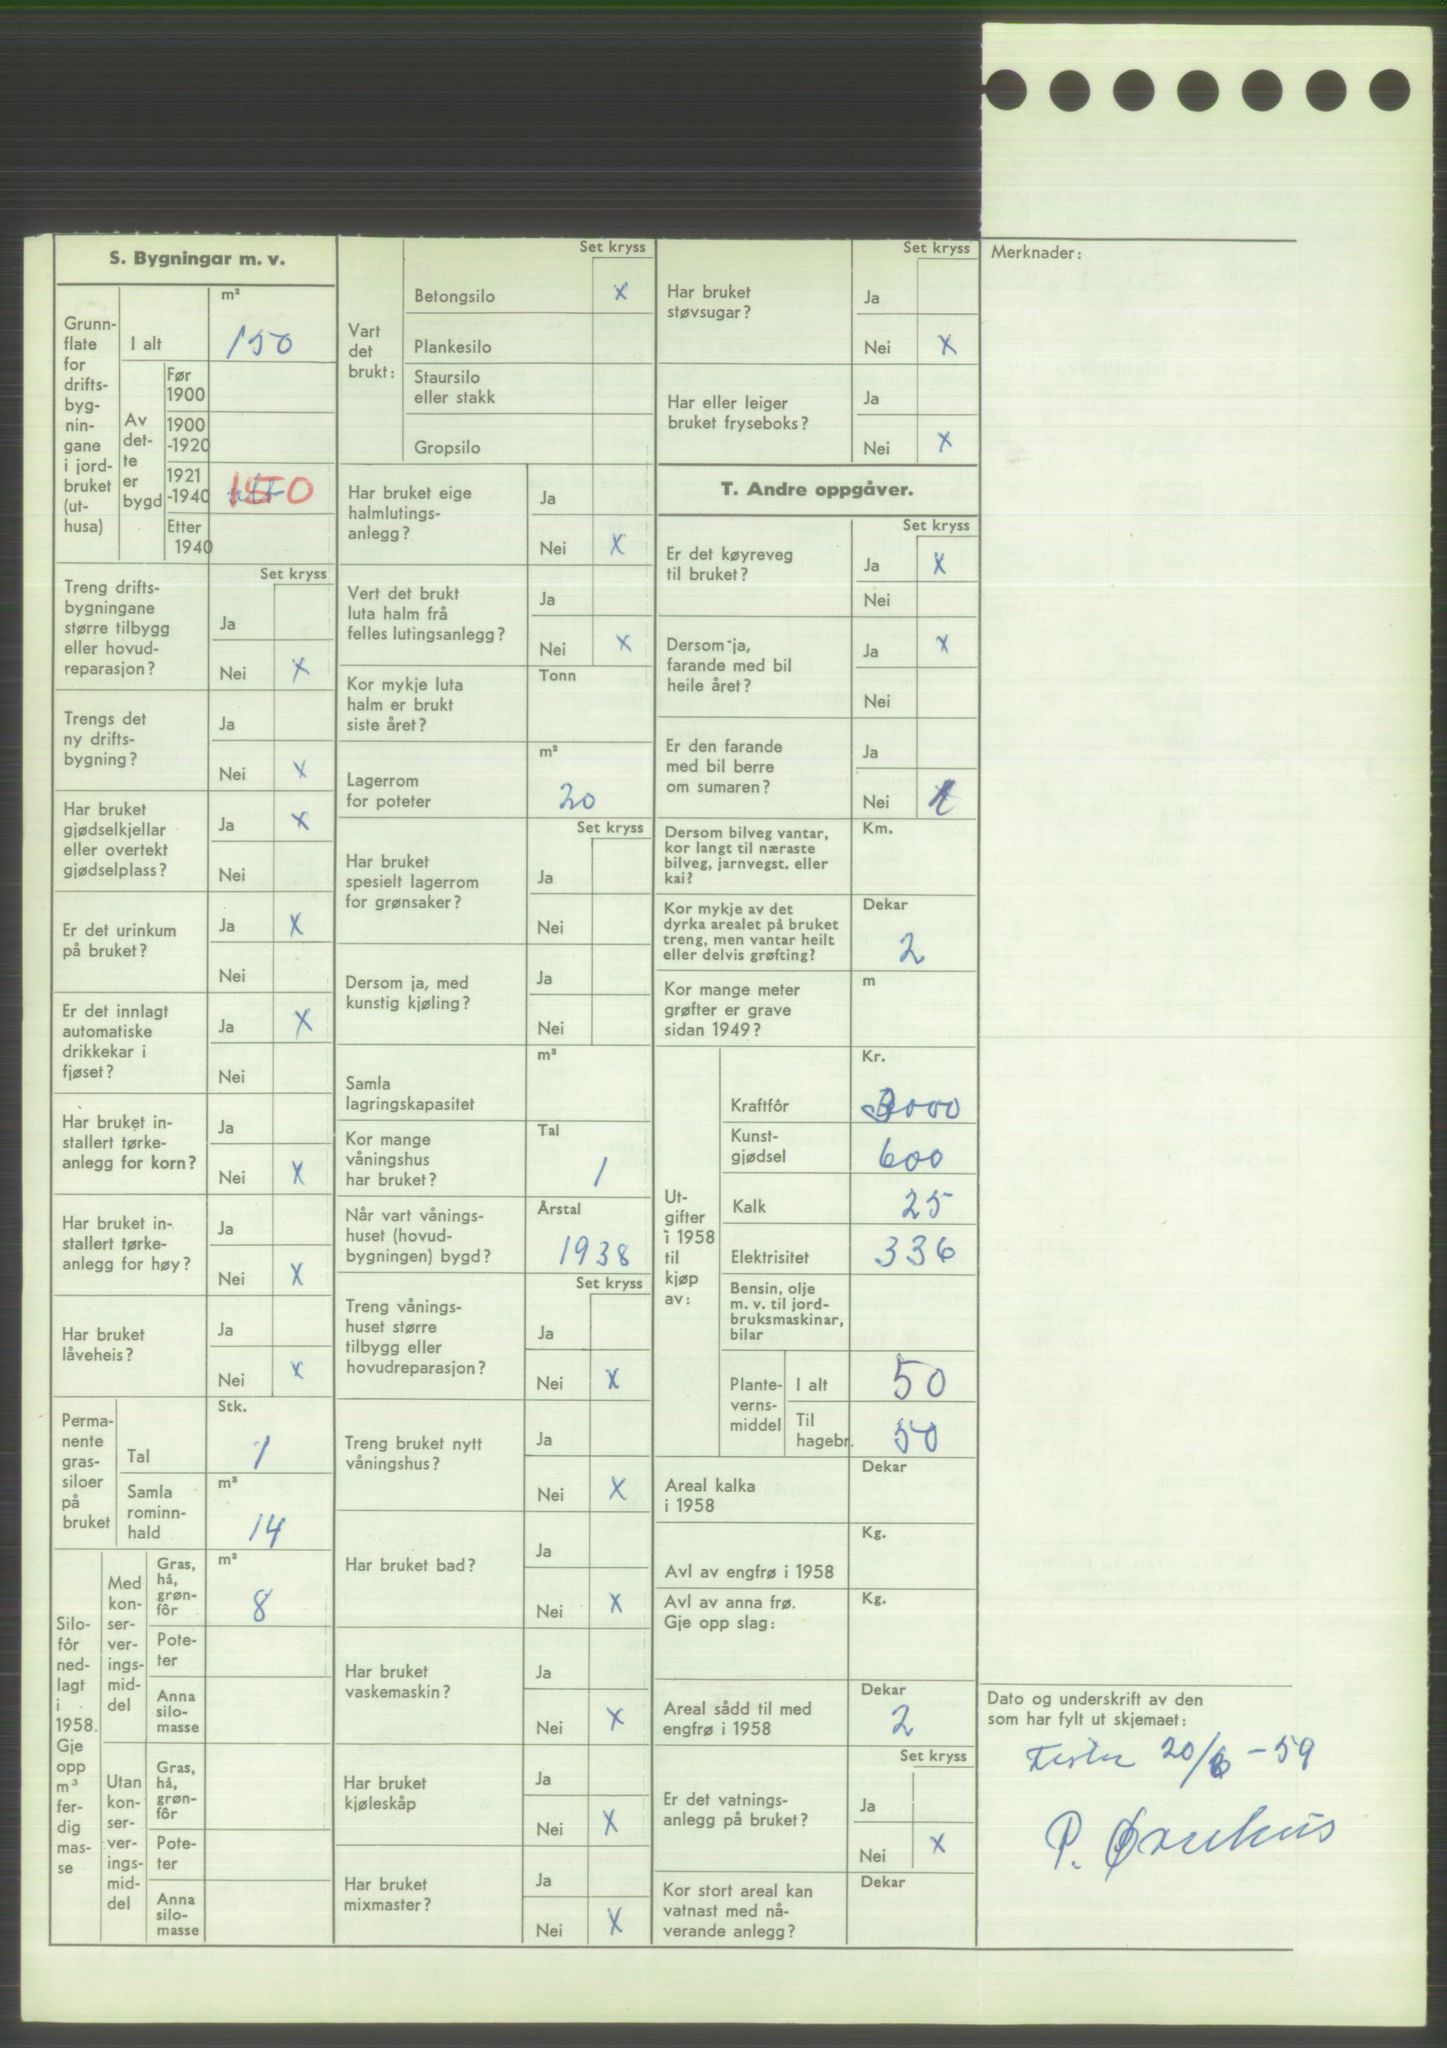 S. Bygningar m. v.
Grunn-
flate
for
drifts-
byg-
nin-
gane
i jord-
bruket
(ut-
husa)
I alt
m²
150
Av
det-
te
er
bygd
Før
1900
1900
-1920
1921
-1940
150
Etter
1940
Set kryss
Treng drifts-
bygningane
større tilbygg
eller hovud-
reparasjon?
Ja
Nei X
Trengs det
ny drifts-
bygning?
Ja
Nei X
Har bruket
gjødselkjellar
eller overtekt
gjødselplass?
Ja X
Nei
Er det urinkum
på bruket?
Ja X
Nei
Er det innlagt
automatiske
drikkekar i
fjøset?
Ja X
Nei
Har bruket in-
stallert tørke-
anlegg for korn?
Ja
Nei X
Har bruket in-
stallert tørke-
anlegg for høy?
Ja
Nei X
Har bruket
låveheis?
Ja
Nei X
Perma-
nente
gras-
siloer
på
bruket
Tal
Stk.
1
Samla
rominn-
hald
m³
14
Silo-
fôr
ned-
lagt
i
1958.
Gje
opp
m³
fer-
dig
mas-
se
Med
kon-
ser-
ver-
ings-
mid-
del
Gras,
hå,
grøn-
fôr
m³
8
Pote-
ter
Anna
silo-
masse
Utan
kon-
ser-
ver-
ings-
mid-
del
Gras,
hå,
grøn-
fôr
Pote-
ter
Anna
silo-
masse
Vart
det
brukt:
Set kryss
Betongsilo X
Plankesilo
Staursilo
eller stakk
Gropsilo
Har bruket eige
halmlutings-
anlegg?
Ja
Nei X
Vert det brukt
luta halm frå
felles lutingsanlegg?
Ja
Nei X
Kor mykje luta
halm er brukt
siste året?
Tonn
Lagerrom
for poteter
m³
20
Set kryss
Har bruket
spesielt lagerrom
for grønsaker?
Ja
Nei
Dersom ja, med
kunstig kjøling?
Ja
Nei
Samla
lagringskapasitet
m³
Kor mange
våningshus
har bruket?
Tal
1
Når vart vånings-
huset (hovud-
bygningen) bygd?
Årstal
1938
Set kryss
Treng vånings-
huset større
tilbygg eller
hovudreparasjon?
Ja
Nei X
Treng bruket nytt
våningshus?
Ja
Nei X
Har bruket bad?
Ja
Nei X
Har bruket
vaskemaskin?
Ja
Nei X
Har bruket
kjøleskåp
Ja
Nei X
Har bruket
mixmaster?
Ja
Nei X
Set kryss
Har bruket
støvsugar?
Ja
Nei X
Har eller leiger
bruket fryseboks?
Ja
Nei X
T. Andre oppgåver.
Set kryss
Er det køyreveg
til bruket?
Ja X
Nei
Dersom ja,
farande med bil
heile året?
Ja X
Nei
Er den farande
med bil berre
om sumaren?
Ja
Nei X
Dersom bilveg vantar,
kor langt til næraste
bilveg, jarnvegst. eller
kai?
Km.
Kor mykje av det
dyrka arealet på bruket
treng, men vantar heilt
eller delvis grøfting?
Dekar
2
Kor mange meter
grøfter er grave
sidan 1949?
m
Ut-
gifter
i 1958
til
kjøp
av:
Kr.
Kraftfôr
Kunst-
gjødsel
600
Kalk
25
Elektrisitet
336
Bensin, olje
m. v. til jord-
bruksmaskinar,
bilar
Plante-
verns-
middel
I alt
50
Til
hagebr.
50
Areal kalka
i 1958
Dekar
Avl av engfrø i 1958
Kg.
Avl av anna frø.
Gje opp slag:
Kg.
Areal sådd til med
engfrø i 1958
Dekar
2
Set kryss
Er det vatnings-
anlegg på bruket?
Ja
Nei X
Kor stort areal kan
vatnast med nå-
verande anlegg?
Dekar
Merknader:
Dato og underskrift av den
som har fylt ut skjemaet:
20/6 - 59
P.